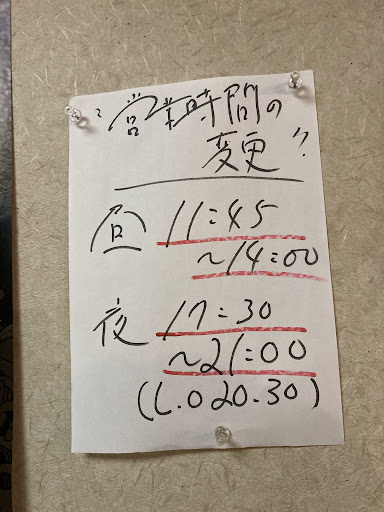 "営業時間の
変更"
昼 11:45
~14:00
夜 17:30
~21:00
(L.O 20.30)